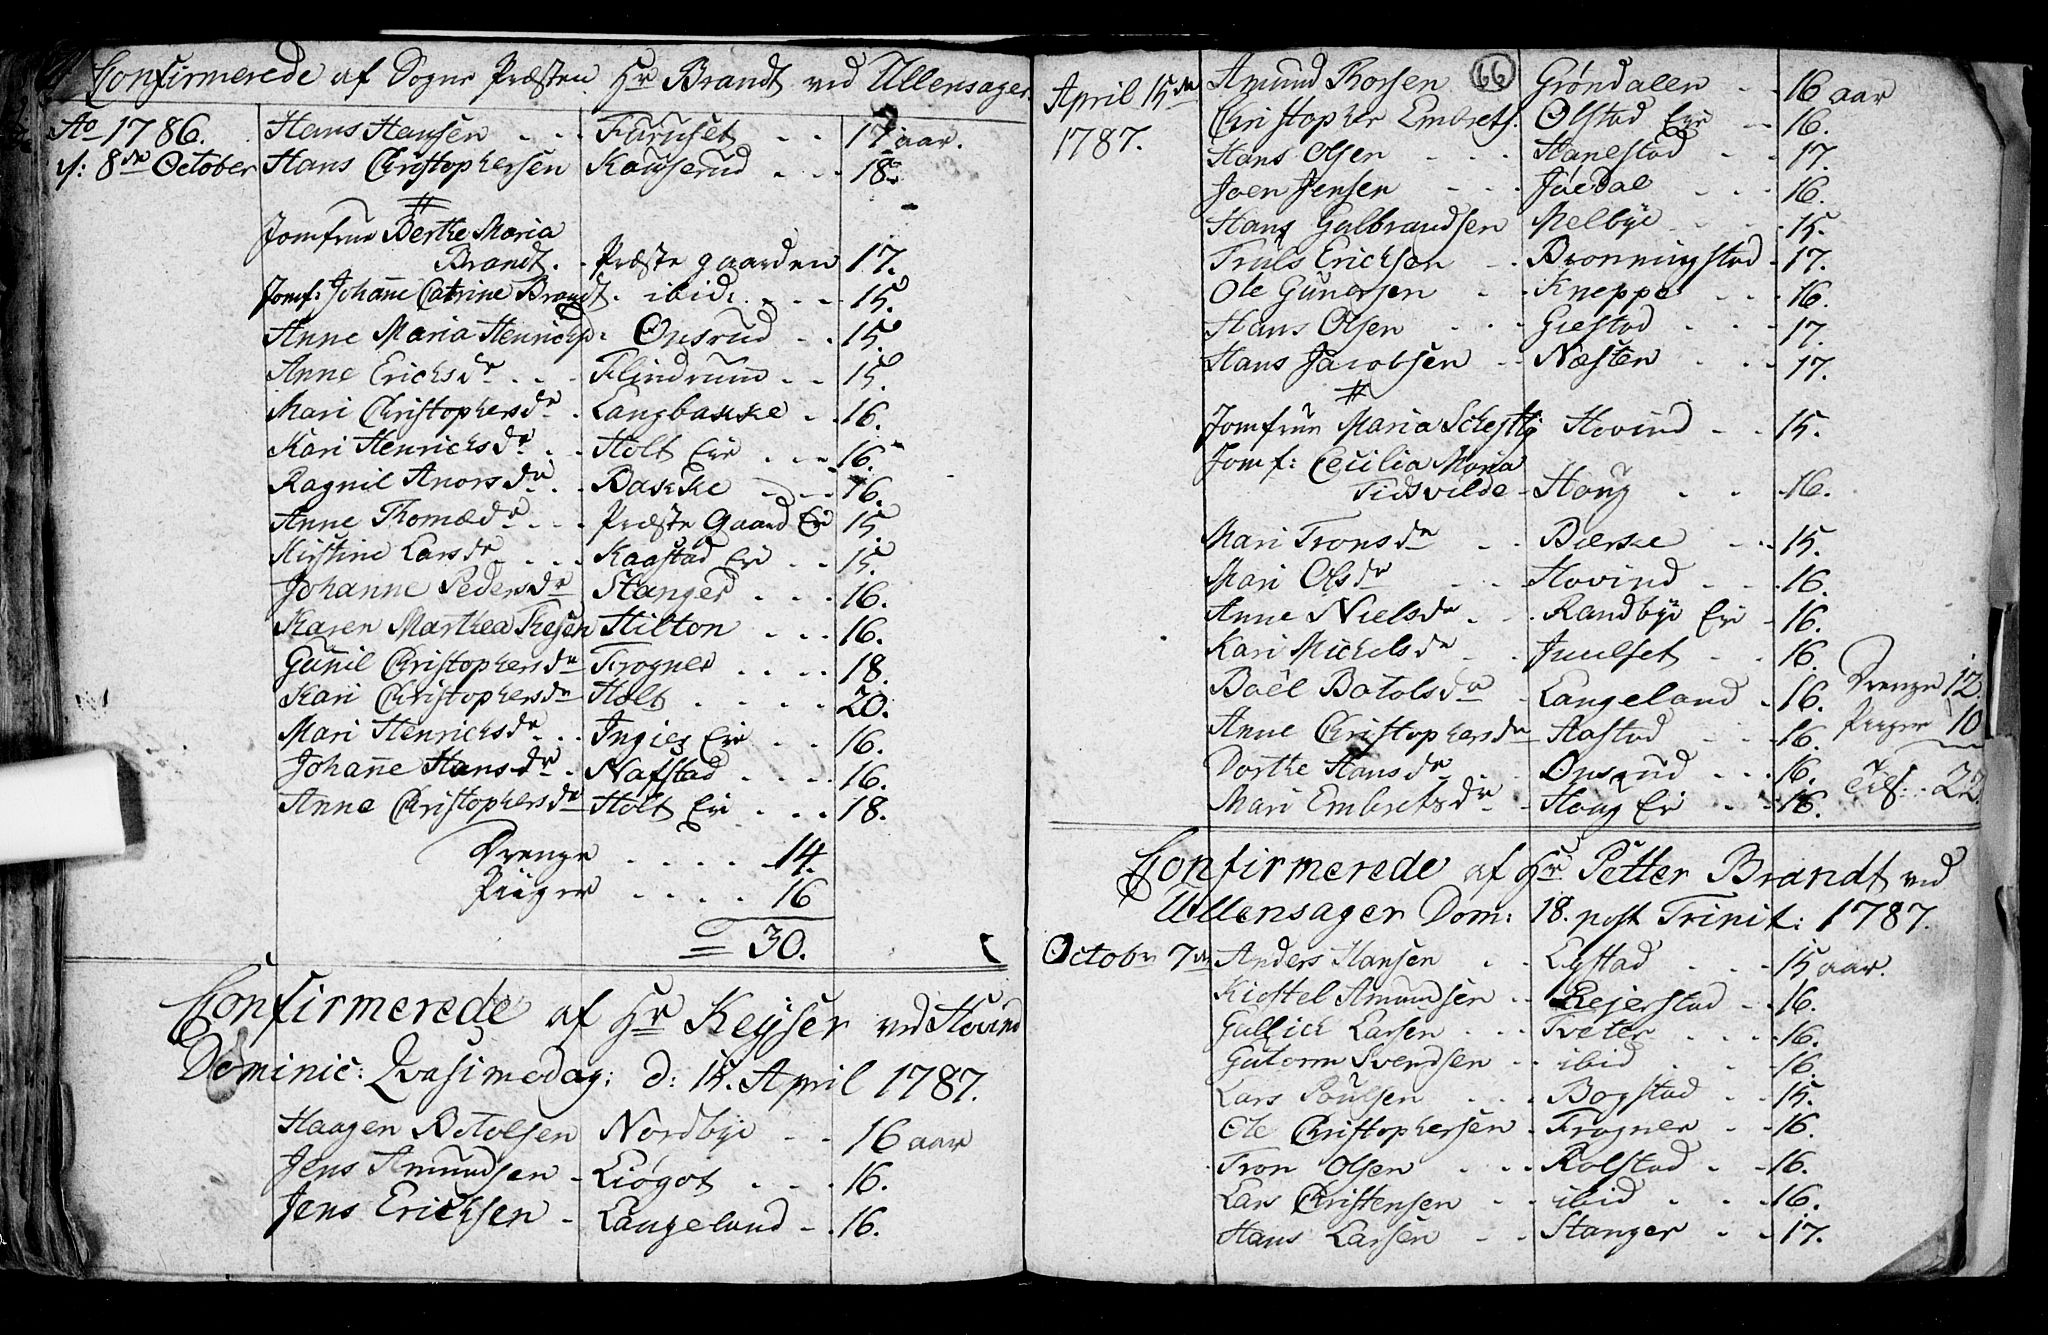 Confirmerede af Sogne Præsten Hr Brandt ved Ullensager.
Ao 1786. Hans Hansen Furuset 17 aar.
d: 8de October Hans Christophersen Kauserud 18.
Jomfrue Berthe Maria
Brandt. Præste gaarden 17.
Jomf: Johañe Catrine Brandt. ibid: 15.
Anne Maria Henrichsd: Onsrud 15.
Anne Ericksdr Flindrum 15.
Mari Christophersdr Langbakke 16.
Kari Henrichsdr Holt Eie 16.
Ragnil Anorsdr Bakke 16.
Anne Thomædr Præste Gaard Ei 15.
Kirstine Larsdr Kaastad Ei 15.
Johanne Pedersdr Stanger 16.
Karen Marthea Thesen Hilton 16.
Guñil Christophersdr Frogner 18.
Kari Christophersdr Holt 20.
Mari Henrichsdr Ingier Eie 16.
Johañe Hansdr Nafstad 16.
Anne Christophersdr Holt Eie 18.
Drenge 14.
Piiger 16
= 30.
Confirmerede af Hr Keyser ved Hovind
Dominic: Qvasimodog: d: 15. April 1787.
Haagen Botolsen Nordbye 16 aar
Jens Amundsen Liøgot 16.
Jens Ericksen Langeland 16.
66
April 15de Amund Thorsen Grøndalen 16 aar
1787. Christopher Embrets. Olstad Eie 16.
Hans Olsen Hanestad 17.
Joen Jensen Joedal 16.
Hans Gulbrandsen Melbye 15.
Truls Ericksen Bronningstad 17.
Ole Gunersen Kneppe 16.
Hans Olsen Giestad 17.
Hans Jacobsen Næsten 17.
Jomfrue Maria Scheftlig Hovind 15.
Jomf: Cecilia Maria
Tidsvilde Houg 16.
Mari Tronsdr Bierke 15.
Mari Olsdr Hovind 16.
Anne Nielsdr Randbye Ei 16.
Kari Michelsdr Juulset 16.
Boël Botolsdr Langeland 16. Drenge 12.
Anne Christophersdr Aastad 16. Piiger 10
Dorthe Hansdr Onsrud 16.
Mari Embretsdr Houg Ei 16. Tils: 22.
Confirmerede af Hr Petter Brandt ved
Ullensager Dom: 18. post Trinit: 1787.
Octobr 7de Anders Hansen Lystad 15 aar.
Kiostel Amundsen Rejerstad 16.
Gullick Larsen Tveter 16.
Gutorm Svendsen ibid 16.
Lars Poulsen Bogstad 15.
Ole Christophersen Frogner 16.
Tron Olsen Rolstad 16.
Lars Christensen ibid 16.
Hans Larsen Stanger 17.